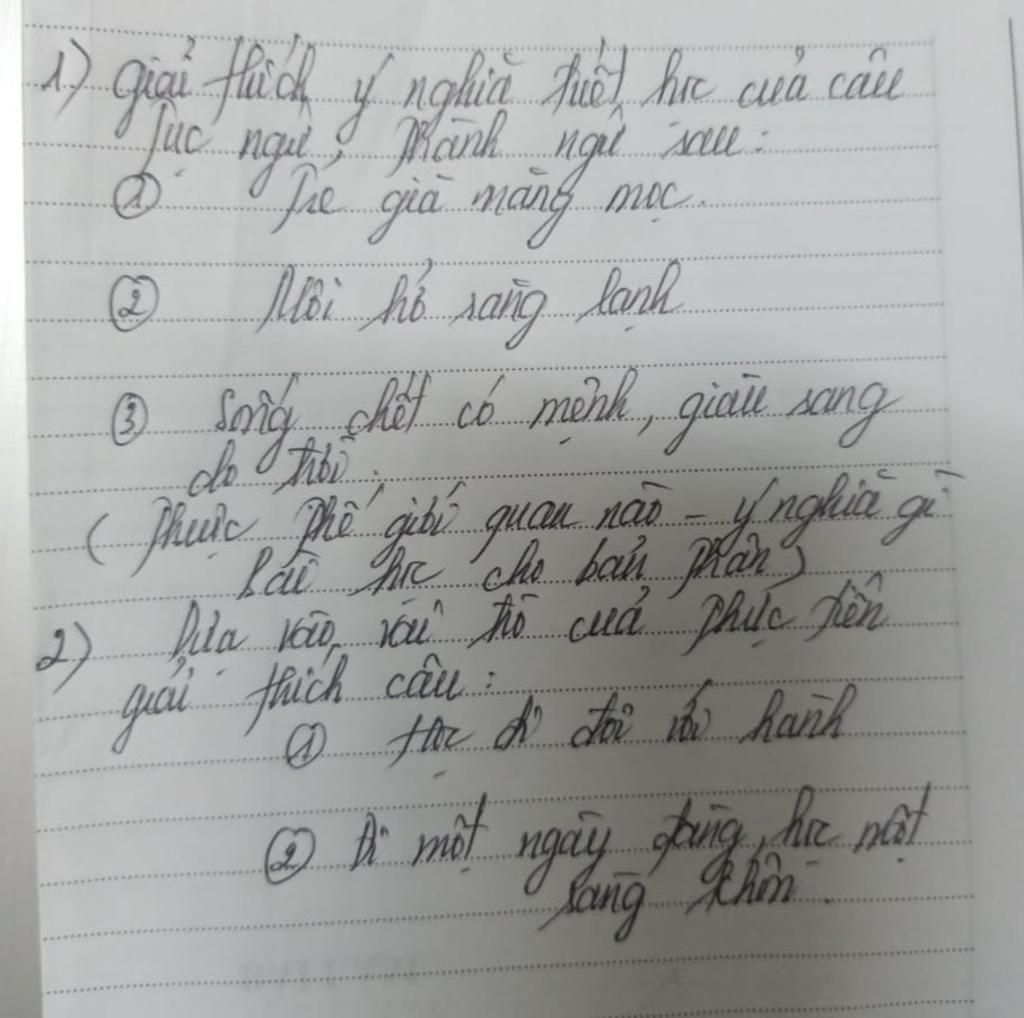 1) giải thích ý nghĩa triết học của câu
tục ngữ, thành ngữ sau:
① Tre già măng mọc.
② Môi hở răng lạnh
③ Sống chết có mệnh, giàu sang
do trời.
( thuộc thế giới quan nào - ý nghĩa gì
bài học cho bản thân)
2) Dựa vào vai trò của thực tiễn
giải thích câu:
① Học đi đôi với hành
② Đi một ngày đàng, học một
sàng khôn.